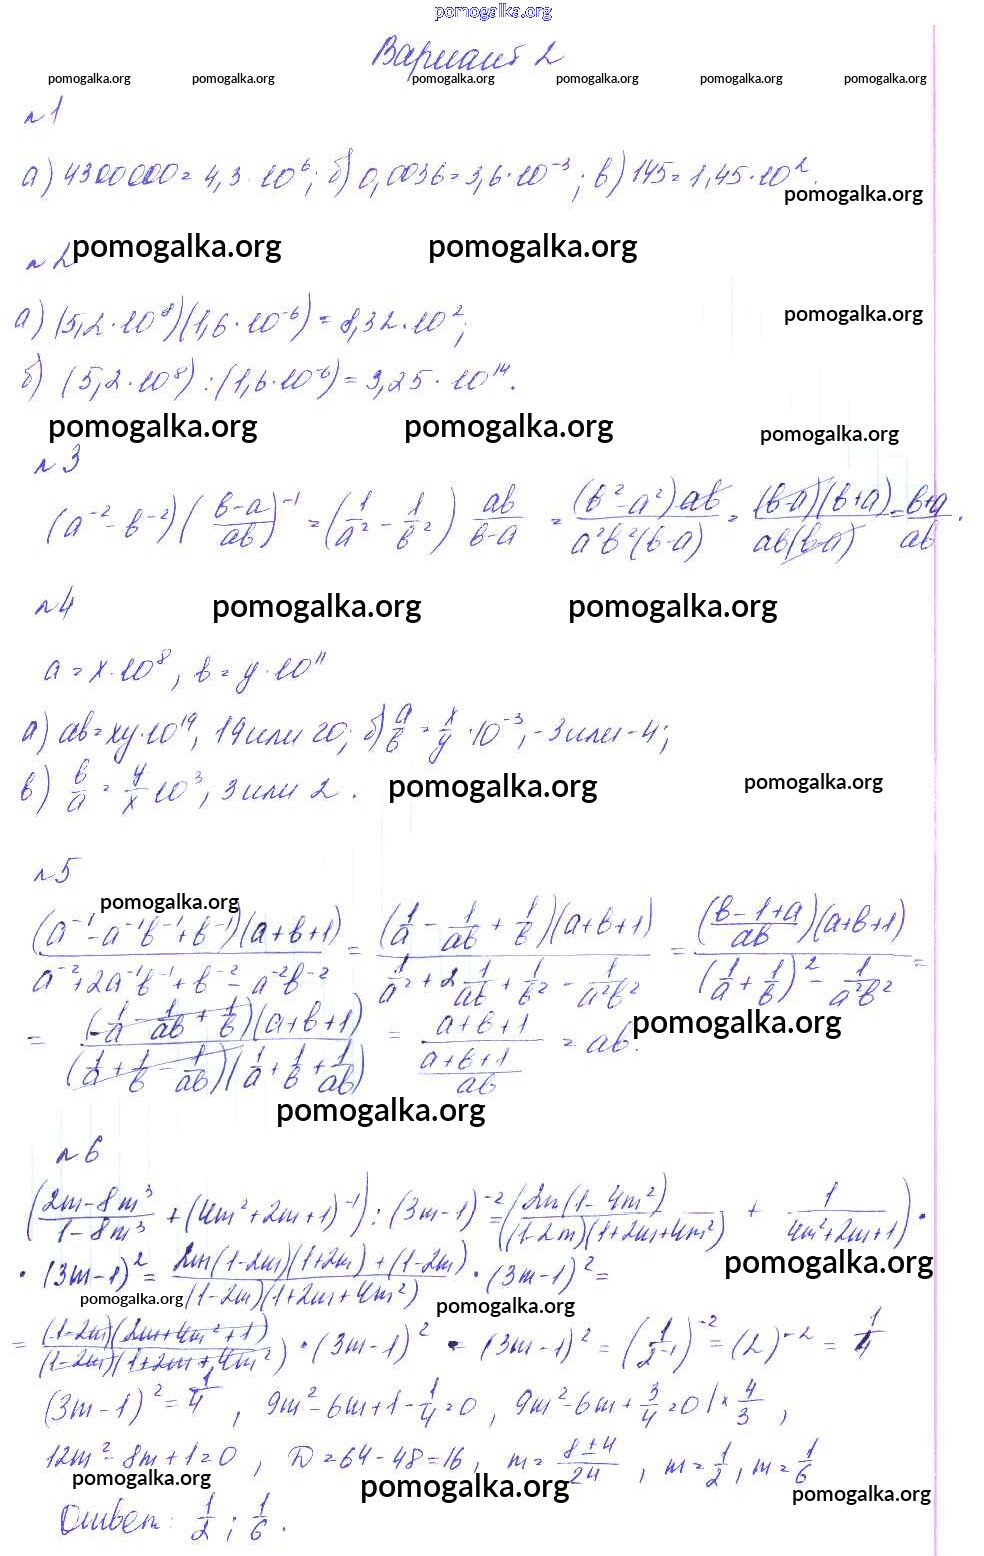 pomogalka.org
Вариант 2
pomogalka.org pomogalka.org pomogalka.org pomogalka.org pomogalka.org pomogalka.org
№1
а) 4300000 = 4,3 · 10^6; б) 0,0036 = 3,6 · 10^-3; в) 145 = 1,45 · 10^2.
pomogalka.org
№2 pomogalka.org pomogalka.org
а) (5,2 · 10^8)(1,6 · 10^-6) = 8,32 · 10^2;
pomogalka.org
б) (5,2 · 10^8) : (1,6 · 10^-6) = 3,25 · 10^14.
pomogalka.org pomogalka.org pomogalka.org
№3
(a^-2 - b^-2)((b-a)/(ab))^-1 = (1/a^2 - 1/b^2) ab/(b-a) = ((b^2-a^2)ab)/(a^2b^2(b-a)) = ((b-a)(b+a))/(ab(b-a)) = (b+a)/(ab).
№4 pomogalka.org pomogalka.org
a = x · 10^8, b = y · 10^11
а) ab = xy · 10^19, 19 или 20; б) a/b = x/y · 10^-3, -3 или -4;
в) b/a = y/x 10^3, 3 или 2. pomogalka.org pomogalka.org
№5
pomogalka.org
((a^-1 - a^-1b^-1 + b^-1)(a+b+1))/(a^-2 + 2a^-1b^-1 + b^-2 - a^-2b^-2) = ((1/a - 1/(ab) + 1/b)(a+b+1))/(1/a^2 + 2 1/(ab) + 1/b^2 - 1/(a^2b^2)) = (((b-1+a)/(ab))(a+b+1))/((1/a + 1/b)^2 - 1/(a^2b^2)) =
= ((1/a - 1/(ab) + 1/b)(a+b+1))/((1/a + 1/b - 1/(ab))(1/a + 1/b + 1/(ab))) = (a+b+1)/((a+b+1)/(ab)) = ab.
pomogalka.org
pomogalka.org
№6
((2m-8m^3)/(1-8m^3) + (4m^2+2m+1)^-1) : (3m-1)^-2 = ((2m(1-4m^2))/((1-2m)(1+2m+4m^2)) + 1/(4m^2+2m+1)) ·
· (3m-1)^2 = (2m(1-2m)(1+2m) + (1-2m))/((1-2m)(1+2m+4m^2)) · (3m-1)^2 =
pomogalka.org
pomogalka.org pomogalka.org
= ((1-2m)(2m+4m^2+1))/((1-2m)(1+2m+4m^2)) · (3m-1)^2 = (3m-1)^2 = (1/2^-1)^-2 = (2)^-2 = 1/4
(3m-1)^2 = 1/4, 9m^2 - 6m + 1 - 1/4 = 0, 9m^2 - 6m + 3/4 = 0 | × 4/3,
12m^2 - 8m + 1 = 0, D = 64 - 48 = 16, m = (8±4)/24, m = 1/2, m = 1/6
pomogalka.org pomogalka.org pomogalka.org
Ответ: 1/2; 1/6.